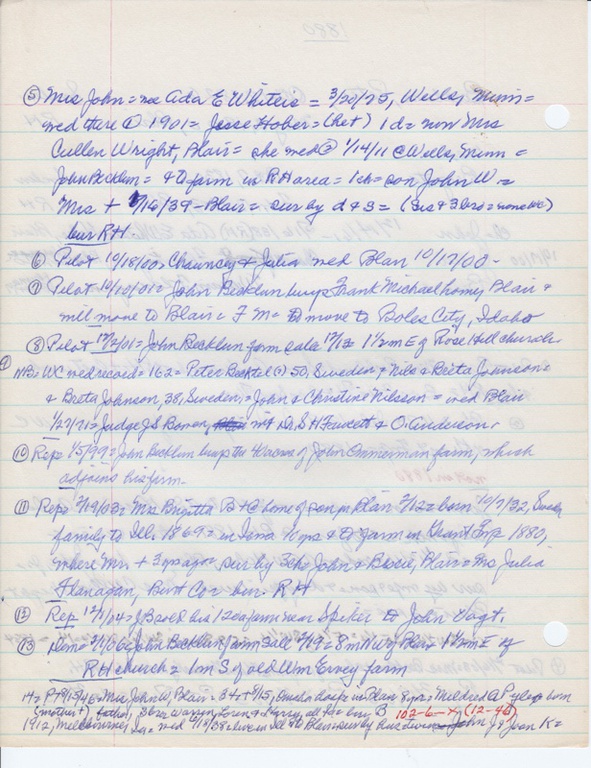 ⑤ Mrs John = nee Ada E Whiters = 3/20/75, Wells, Minn =
med there ① 1901 = Jesse Hober = (het) 1 d = now Mrs
Cullen Wright, Blair = she med ② 1/14/11 @ Wells, Minn =
John Becklun = & to farm in RH area = 1 ch = son John W. =
Mrs + 9/16/34 - Blair = sur by d & s = (sis & 3 bro = none WC)
bur RH
⑥ Pilot 10/18/00, Chauncy & Julia med Blair 10/17/00 -
⑦ Pilot 10/10/01 = John Becklun buys Frank Michael home, Blair &
will move to Blair = F M = to move to Boles City, Idaho
⑧ Pilot 12/01 = John Becklun farm sale 1 1/2 m E of Rose Hill church
⑨ NB = WC med record = 162 = Peter Becktel 50, Sweden, Nils & Boeta Johnson =
& Beeta Johnson, 38, Sweden = John & Christine Nilsson = med Blair
1/27/71 = Judge J S Bowen, wit Dr. S H Fawcett & O. Anderson.
⑩ Rep 1/5/99 = John Becklun buys the 40 acres of John Ommerman farm, which
adjoins his farm.
⑪ Rep 2/19/03 = Mrs Brigitta B + @ home of son in Blair 2/12 = born 10/2/32, Sweden
family to Ill. 1869 = in Iowa 10 yrs & to farm in Grant Twp 1880,
where Mr. + 3 yrs ago. sur by 3 ch = John & Bosie, Blair = Mrs Julia
Flanagan, Burt Co = bur. RH
⑫ Rep 12/1/04 = J B sold his 120 a farm near Spiker to John Vogt.
⑬ Dem = 2/1/06 = John Becklun farm sale 2/19 = 8 m NW of Blair 1 1/2 m E of
RH church = 1 m S of old Wm Ervey farm
14 = P + 9/15/46 = Mrs John W, Blair = 34 + 9/15, Omaha hosp = in Blair 8 yrs = Mildred A Pyle = born
(mother +) father, 3 bro Warren, Loren & Harry, all Ia = bur B 102-6-X (12-46)
1912, Melbourne, Ia = med 6/18/38 = live in Ill & to Blair = sur by hus = John & Joan K =